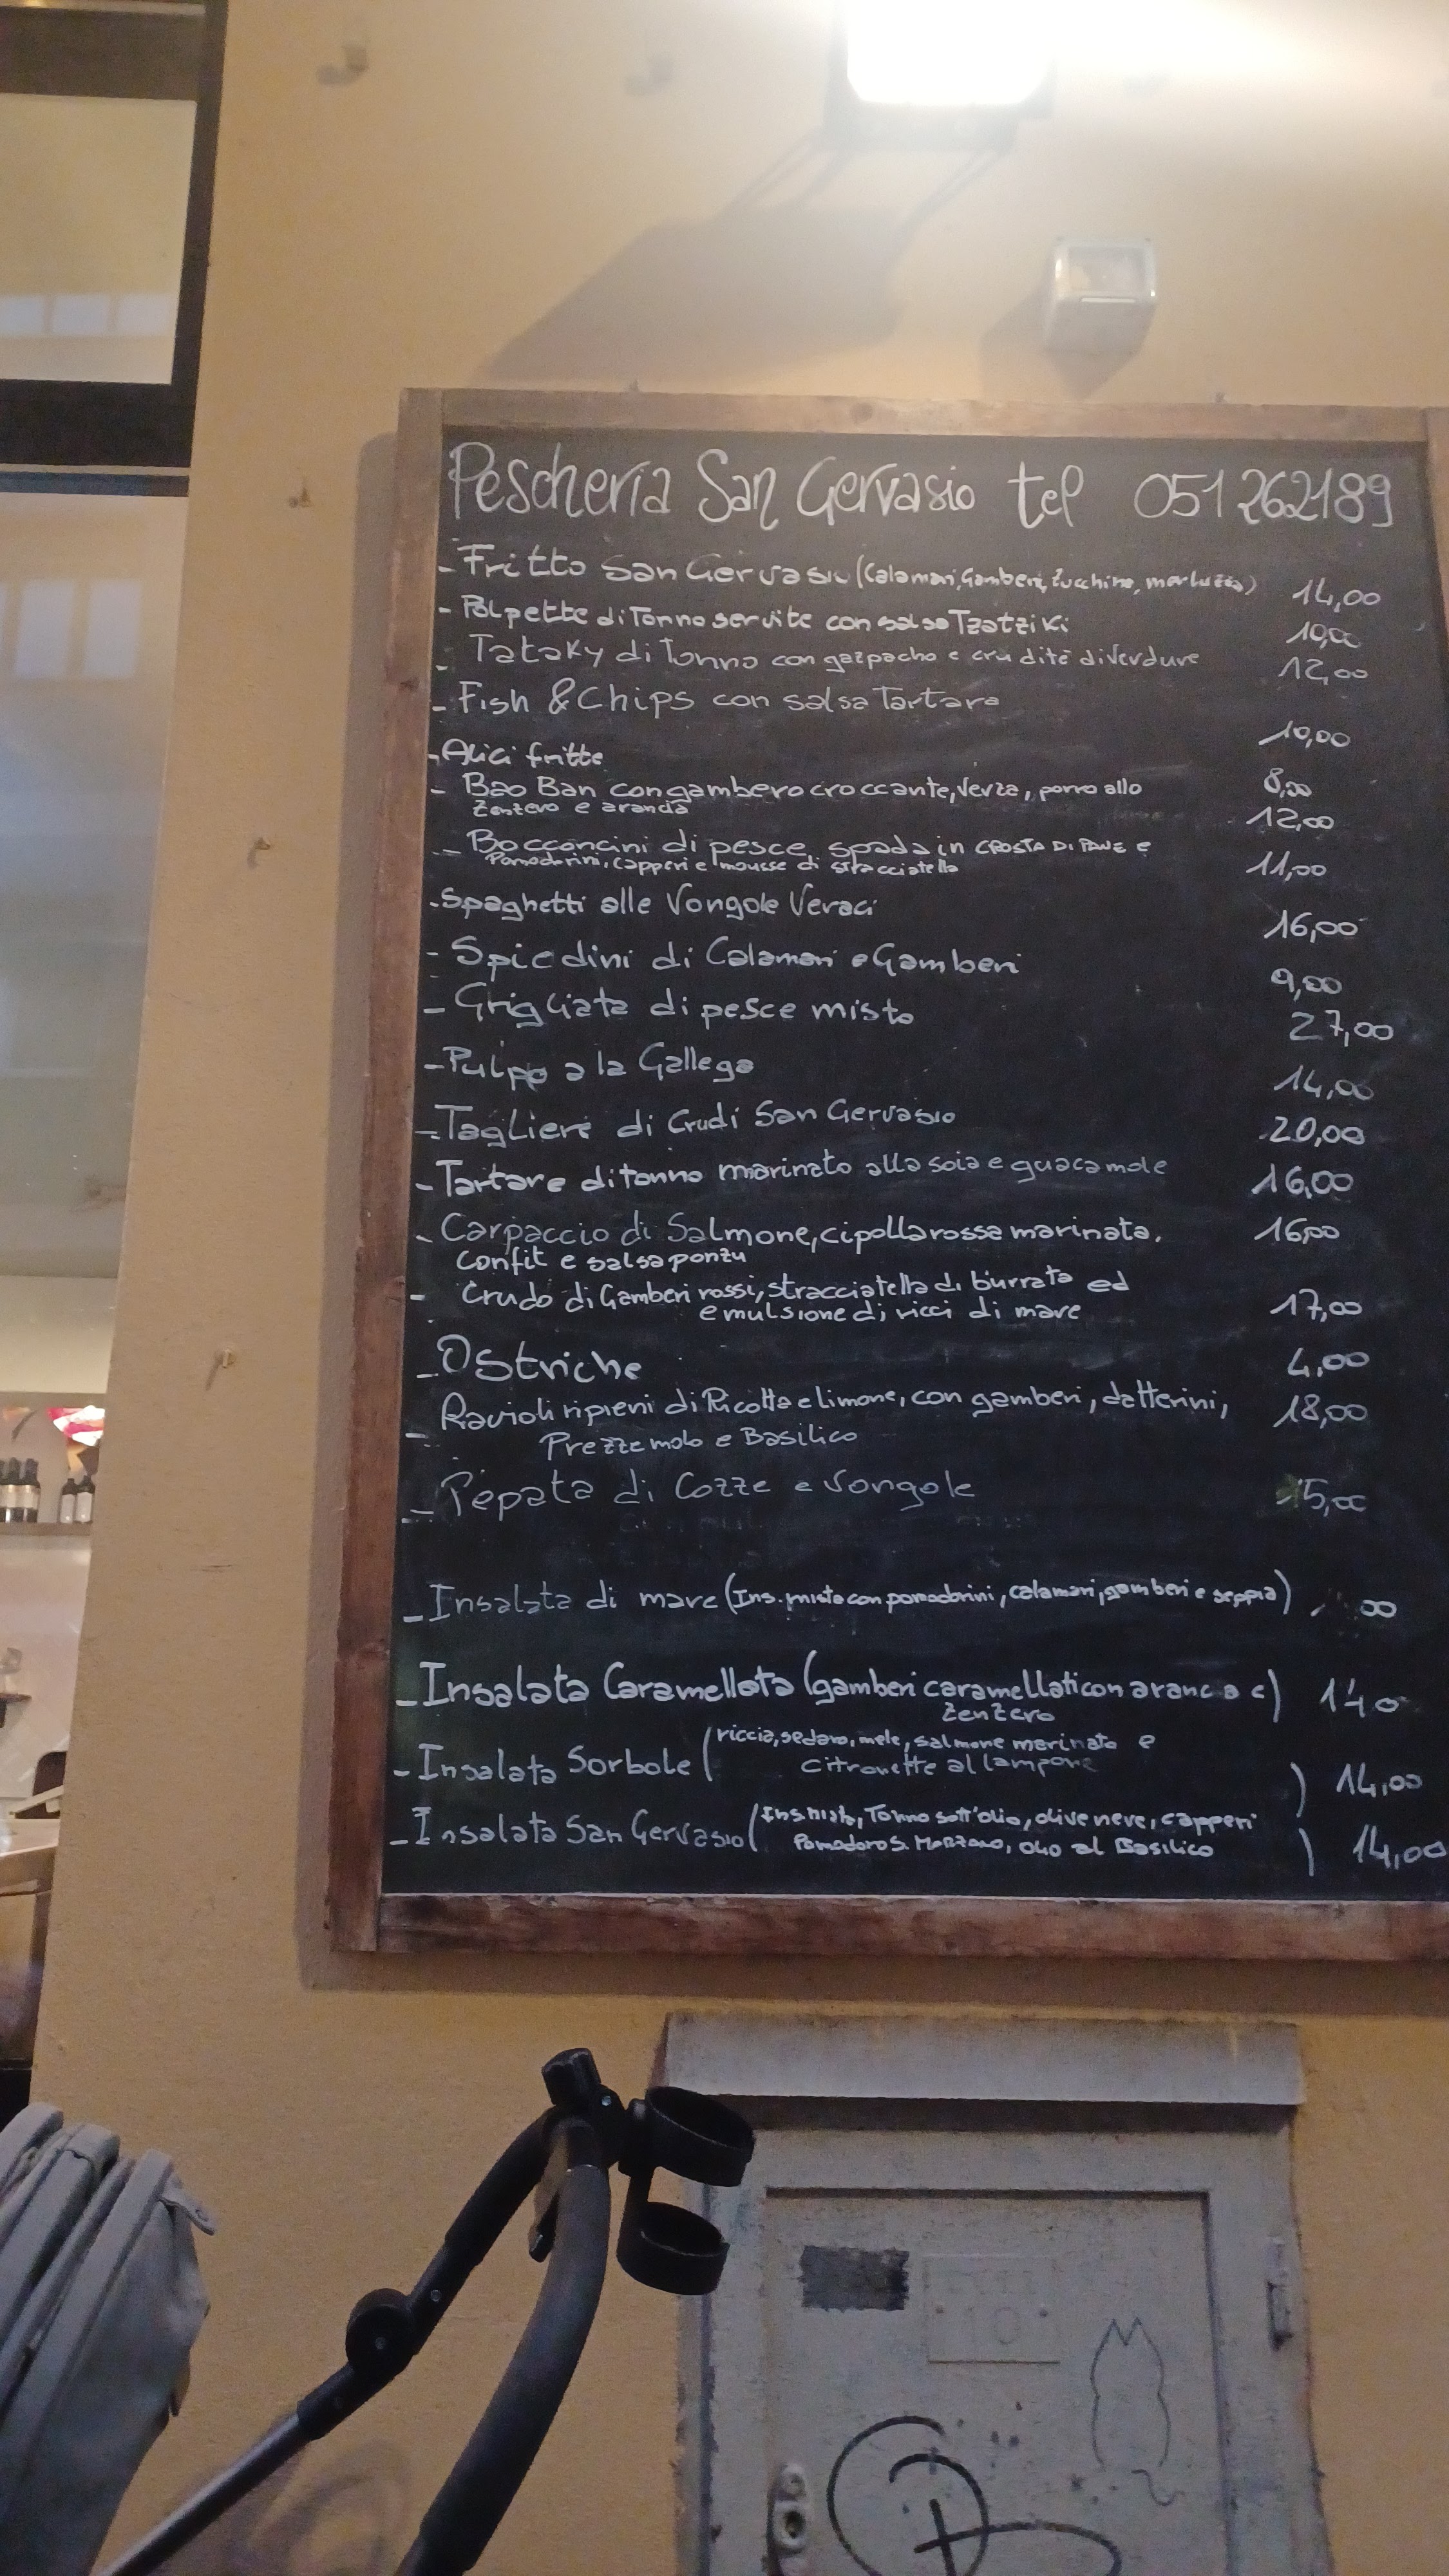 Pescheria San Gervasio tel 051 262189
- Fritto San Gervasio (Calamari, Gamberi, Zucchine, merluzzo) 14,00
- Polpette di Tonno servite con salsa Tzatziki 10,00
- Tataky di Tonno con gazpacho e crudité di verdure 12,00
- Fish & Chips con salsa Tartara 10,00
- Alici fritte 8,00
- Bao Ban con gambero croccante, Verza, porro allo 12,00
Zenzero e arancia
- Bocconcini di pesce spada in CROSTA DI PANE e 11,00
Pomodorini, capperi e mousse di stracciatella
- Spaghetti alle Vongole Veraci 16,00
- Spiedini di Calamari e Gamberi 9,00
- Grigliata di pesce misto 27,00
- Pulpo a la Gallega 14,00
- Tagliere di Crudi San Gervasio 20,00
- Tartare di tonno marinato alla soia e guacamole 16,00
- Carpaccio di Salmone, cipolla rossa marinata, 16,00
Confit e salsa ponzu
- Crudo di Gamberi rossi, stracciatella di burrata ed
emulsione di ricci di mare 17,00
- Ostriche 4,00
- Ravioli ripieni di Ricotta e limone, con gamberi, datterini, 18,00
Prezzemolo e Basilico
- Pepata di Cozze e Vongole 15,00
- Insalata di mare (Ins. mista con pomodorini, calamari, gamberi e seppia) 00
- Insalata Caramellata (gamberi caramellati con arancia e) 14,0
Zenzero
- Insalata Sorbole (riccia, sedano, mele, salmone marinato e
citronette al lampone) 14,00
- Insalata San Gervasio (Ins. mista, Tonno sott'olio, olive nere, capperi
Pomodoro S. Marzano, olio al Basilico) 14,00
10